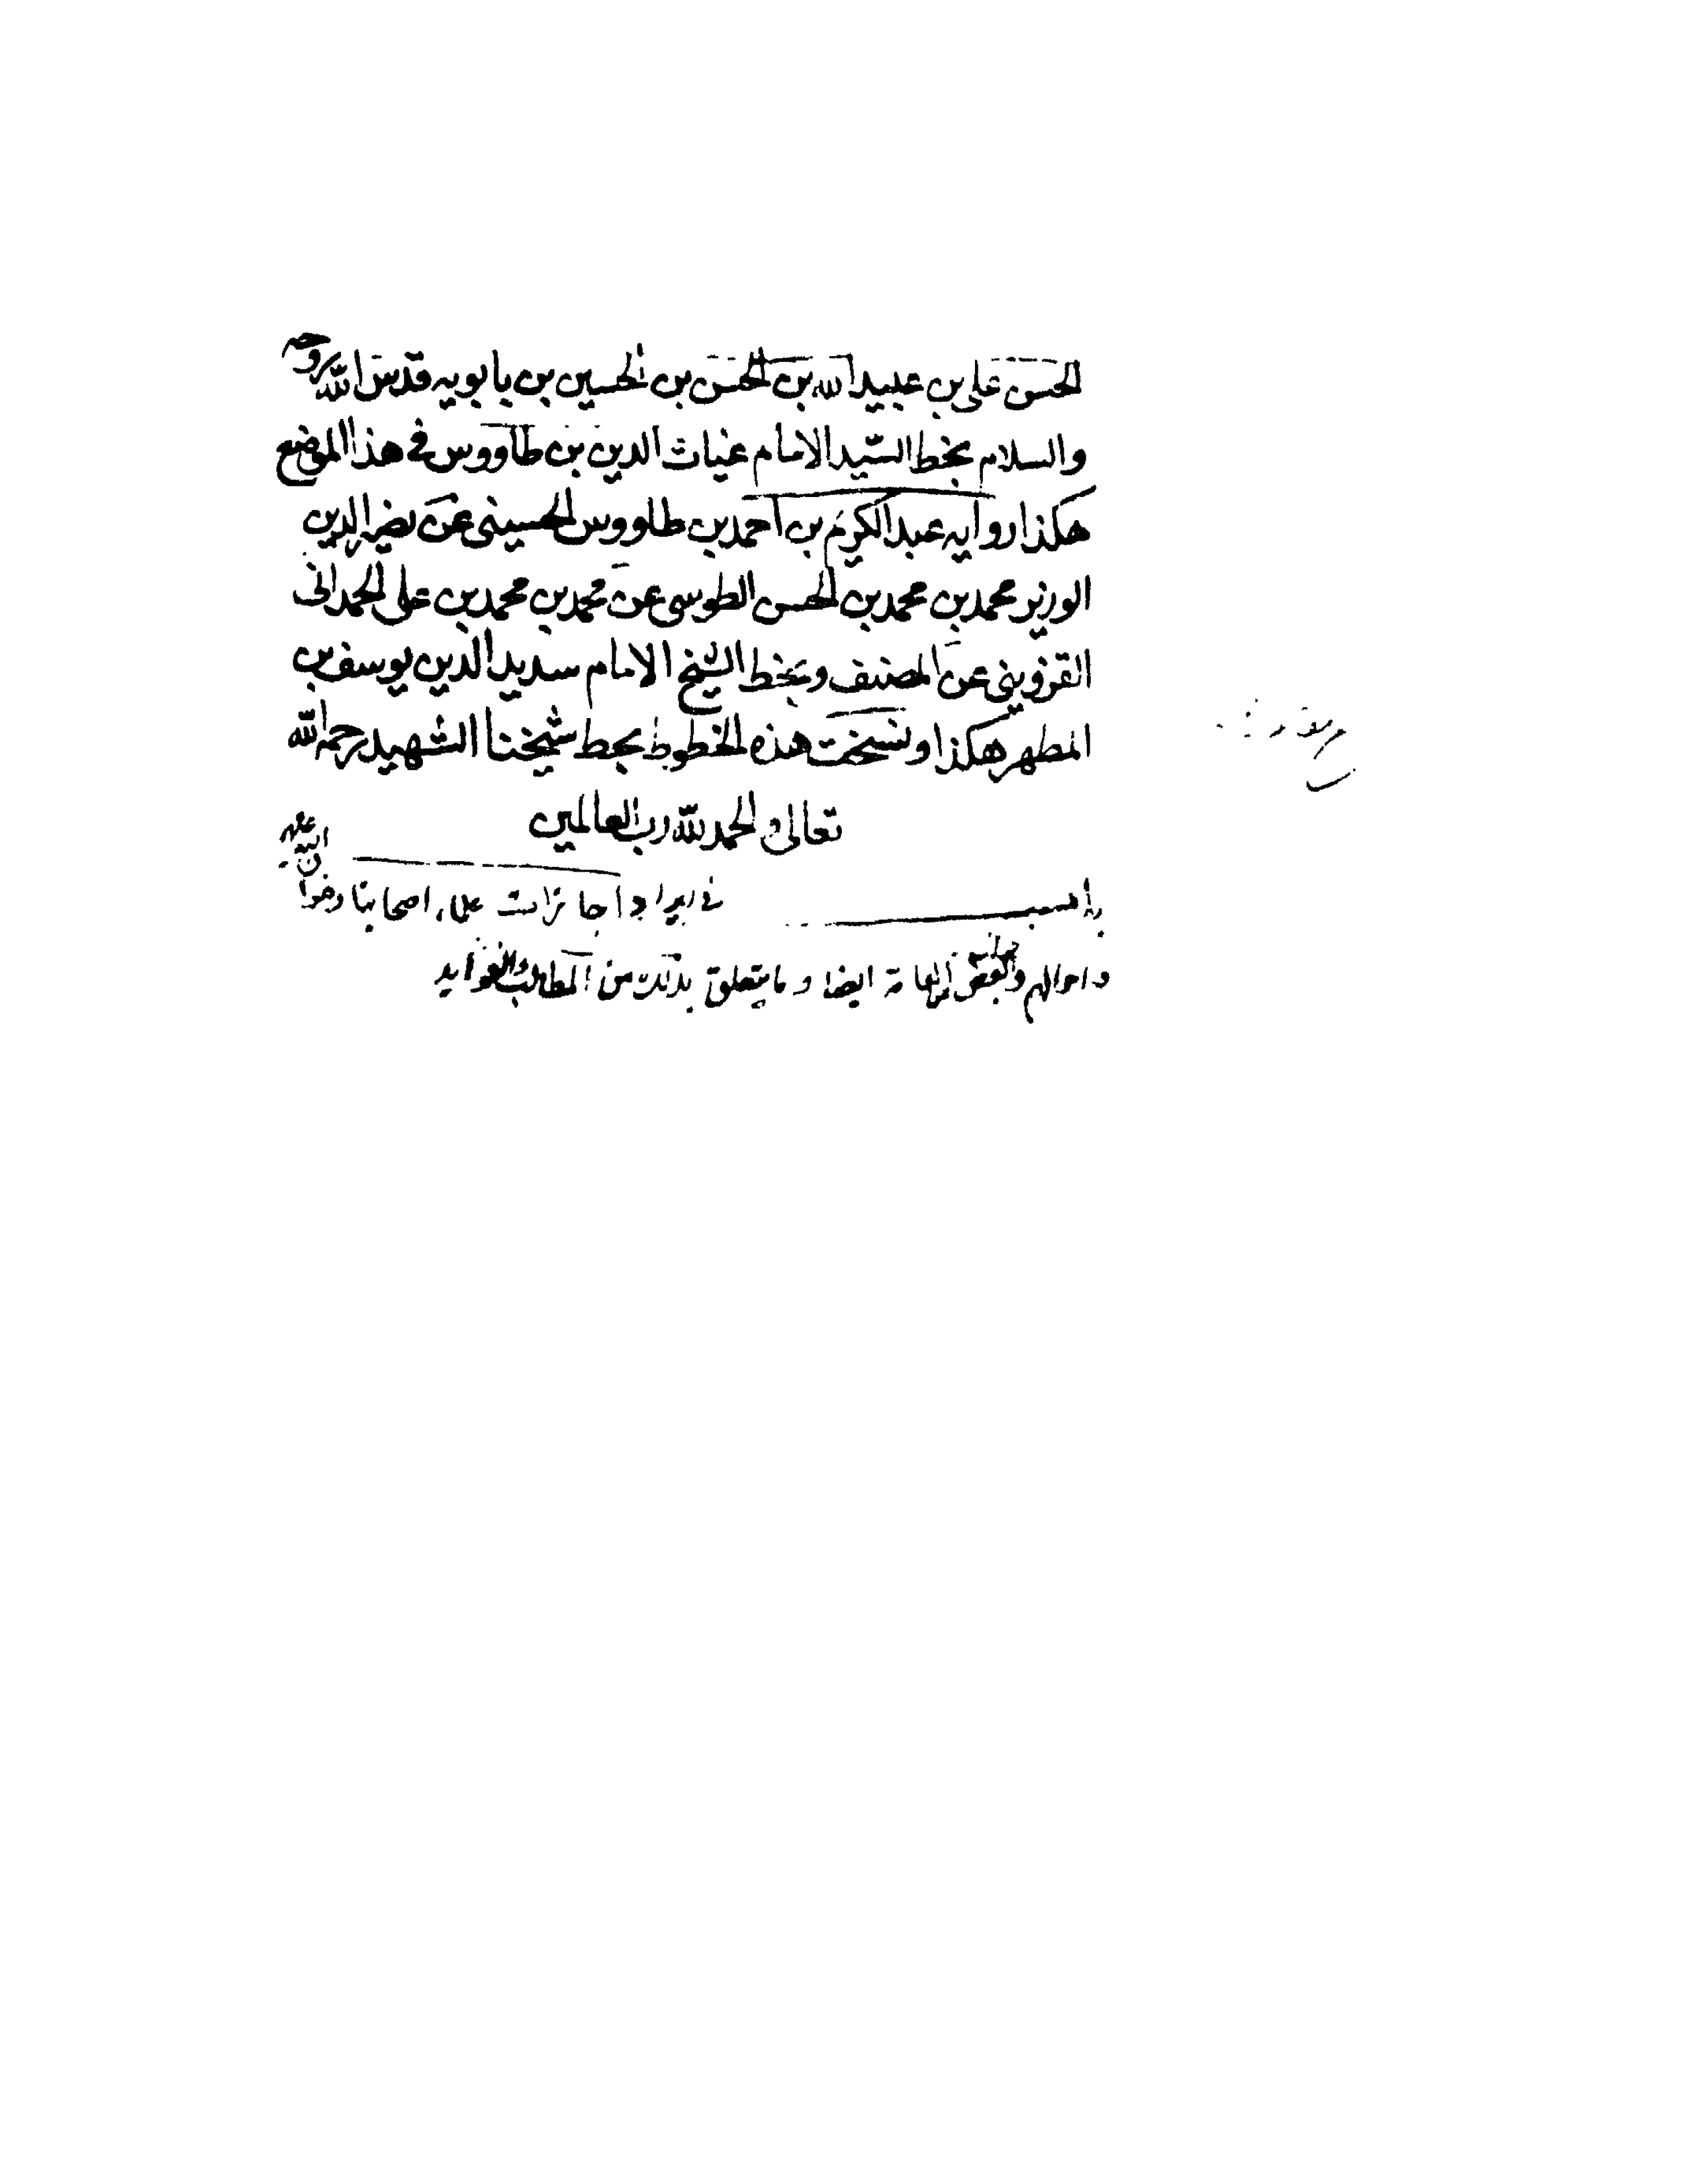 الحسن علی بن عبیدالله بن الحسن بن الحسین بن بابویه قدس الله روحه
والسلام بخط السّید الامام غیاث الدین بن طاووس فی هذا الموضع
هکذا روایه عبدالکریم بن احمد بن طاووس الحسینی عن نصیرالدین
الوزیر محمد بن محمد بن الحسن الطوسی عن محمد بن محمد بن علی الحمدانی
القزوینی عن المصنف و بخط الشیخ الامام سدیدالدین یوسف بن
المطهر هکذا ونسخت هذه الخطوط بخط شیخنا الشهید رحمه الله
تعالی والحمد لله رب العالمین
باب فی ایراد اجازات علماء اصحابنا رضوان الله علیهم
و احوالهم ولبعض العامة ایضا و ما یتعلق بذلک من المطالب والفواید